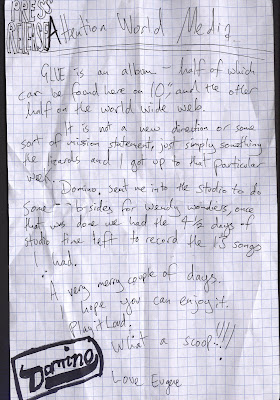 PRESS
RELEASE
Attention World Media
GLUE is an album - half of which
can be found here on 10", and the other
half on the world wide web.
It is not a new direction or some
sort of mission statement, just simply something
the lizards and I got up to that particular
week.
Domino sent me into the studio to do
some b-sides for wendy wonders, once
that was done we had the 4 1/2 days of
studio time left to record the 15 songs
I had.
A very merry couple of days.
hope you can enjoy it.
Play it Loud.
What a scoop!!!!
Domino
Love Eugene